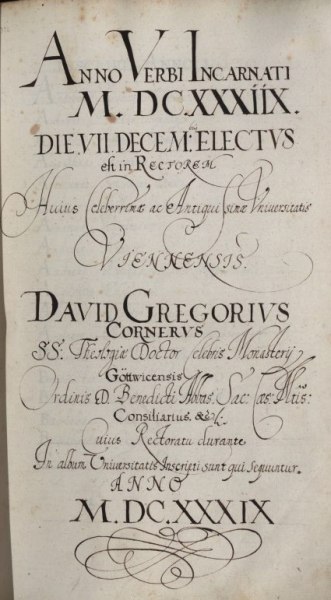 ANNO VERBI INCARNATI
M. DCXXXIIX.
DIE.VII. DECEM: ELECTVS
est in RECTOREM
Huius Celeberrimæ ac Antiquissimæ Vniversitatis
VIENNENSIS.
DAVID GREGORIVS
CORNERVS
SS: Theologiæ Doctor celebris Monasterij
Göttwicensis
Ordinis D. Benedicti Abbas. Sac: Cæs: Mtis:
Consiliarius. &c.
Cuius Rectoratu durante
In album Universitatis Inscripti sunt qui sequuntur.
ANNO
M. DC.XXXIX